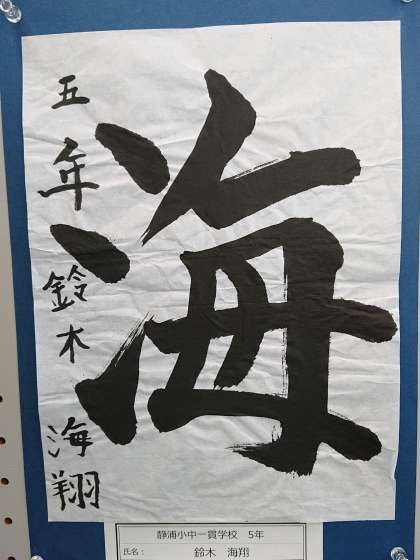 海
五年 鈴木 海翔
静浦小中一貫学校 5年
氏名： 鈴木 海翔